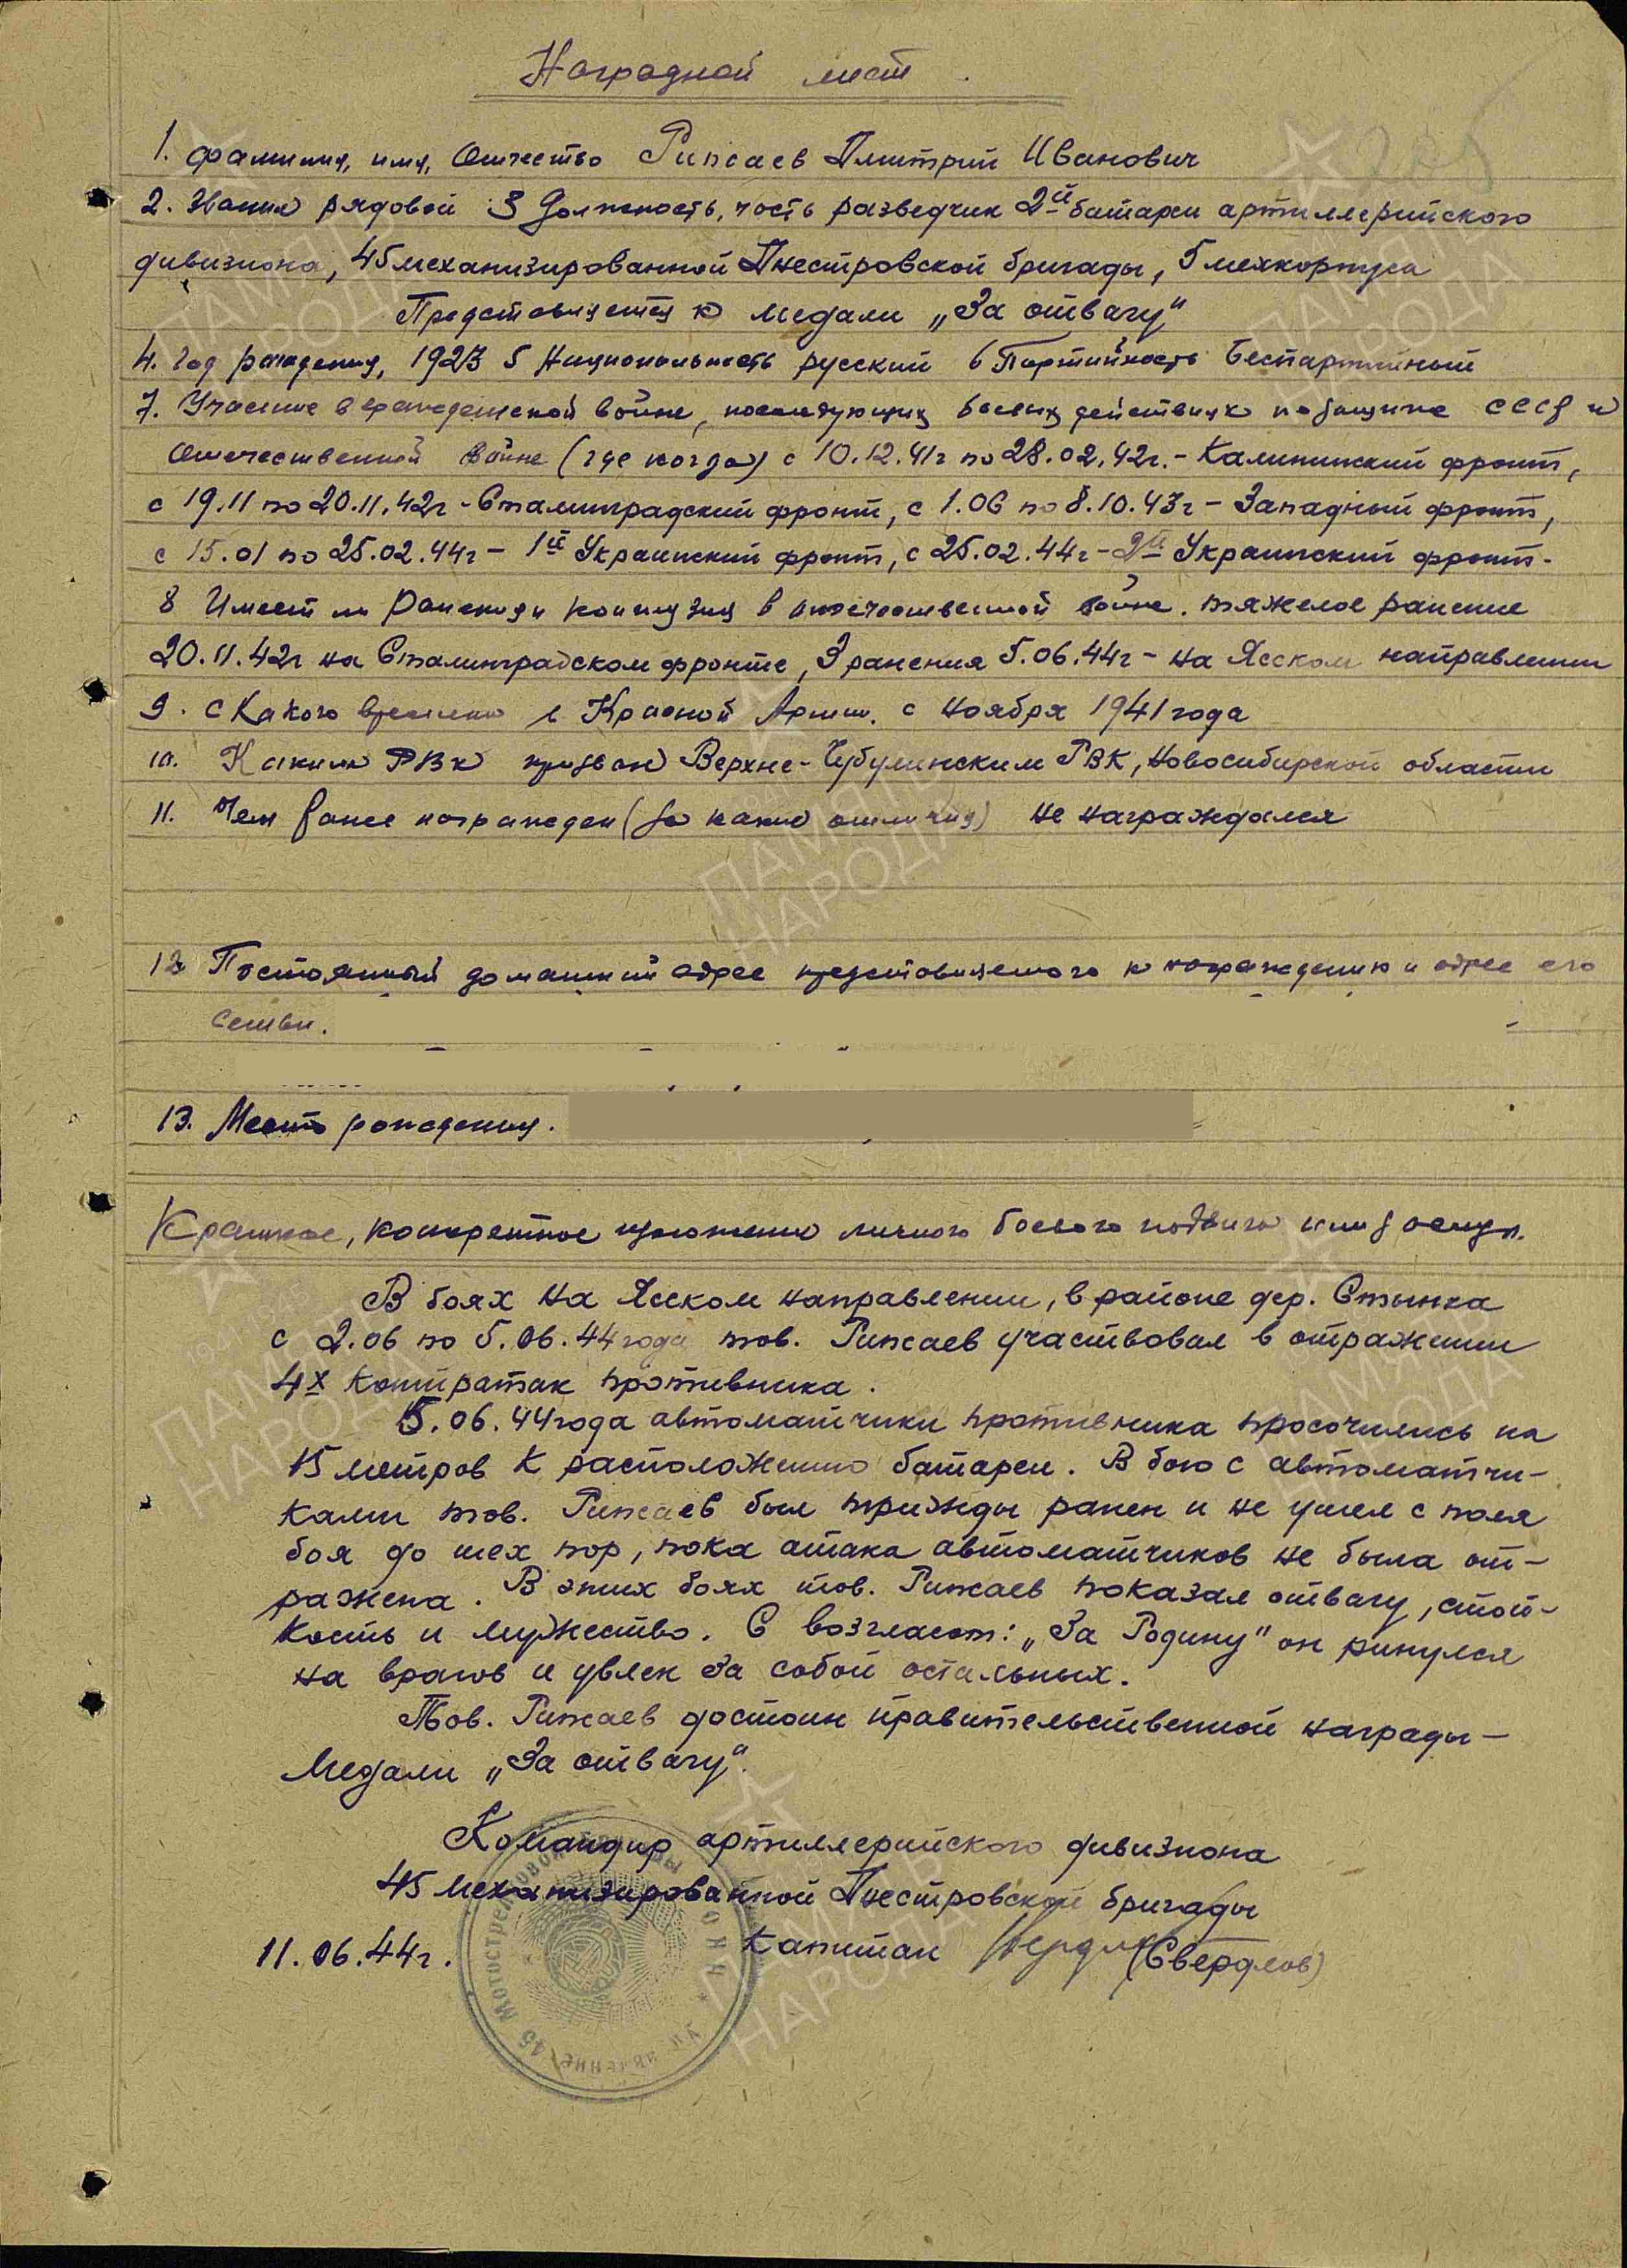 Наградной лист.
1. Фамилия, имя, Отчество Рипсаев Дмитрий Иванович
2. Звание рядовой 3 Должность, часть разведчик 2й батареи артиллерийского
дивизиона, 45 механизированной Днестровской бригады, 5 мехкорпуса
Представляется к медали „За отвагу“
4. Год рождения, 1923 5 Национальность русский 6 Партийность беспартийный
7. Участие в гражданской войне, последующих боевых действиях по защите СССР и
Отечественной войне (где когда) с 10.12.41г по 28.02.42г. - Калининский фронт,
с 19.11 по 20.11.42г - Сталинградский фронт, с 1.06 по 8.10.43г - Западный фронт,
с 15.01 по 25.02.44г - 1й Украинский фронт, с 25.02.44г - 2й Украинский фронт.
8 Имеет ли ранения и контузии в отечественной войне. тяжелое ранение
20.11.42г на Сталинградском фронте, 3 ранения 5.06.44г - на Ясском направлении
9. С Какого времени в Красной Армии. с ноября 1941 года
10. Каким РВК призван Верхне-Чубулинским РВК, Новосибирской области
11. Чем ранее награжден (за какие отличия) не награждался
12 Постоянный домашний адрес представляемого к награждению и адрес его
семьи.
13. Место рождения.
Краткое, конкретное изложение личного боевого подвига или заслуг.
В боях на Ясском направлении, в районе дер. Стынка
с 2.06 по 5.06.44 года тов. Рипсаев участвовал в отражении
4х контратак противника.
5.06.44 года автоматчики противника просочились на
15 метров к расположению батареи. В бою с автоматчи-
ками тов. Рипсаев был трижды ранен и не ушел с поля
боя до тех пор, пока атака автоматчиков не была от-
ражена. В этих боях тов. Рипсаев показал отвагу, стой-
кость и мужество. С возгласом: „За Родину“ он ринулся
на врагов и увлек за собой остальных.
Тов. Рипсаев достоин правительственной награды -
медали „За отвагу“.
Командир артиллерийского дивизиона
45 механизированной Днестровской бригады
11.06.44г. Капитан (Свердлов)